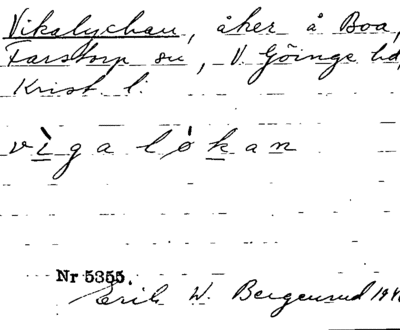 Vikalychan, åker å Boa,
Farstorp sn, V. Göinge hd,
Krist. l.
vìgalòkan
Nr 5355.
Erik W. Bergenrud 194